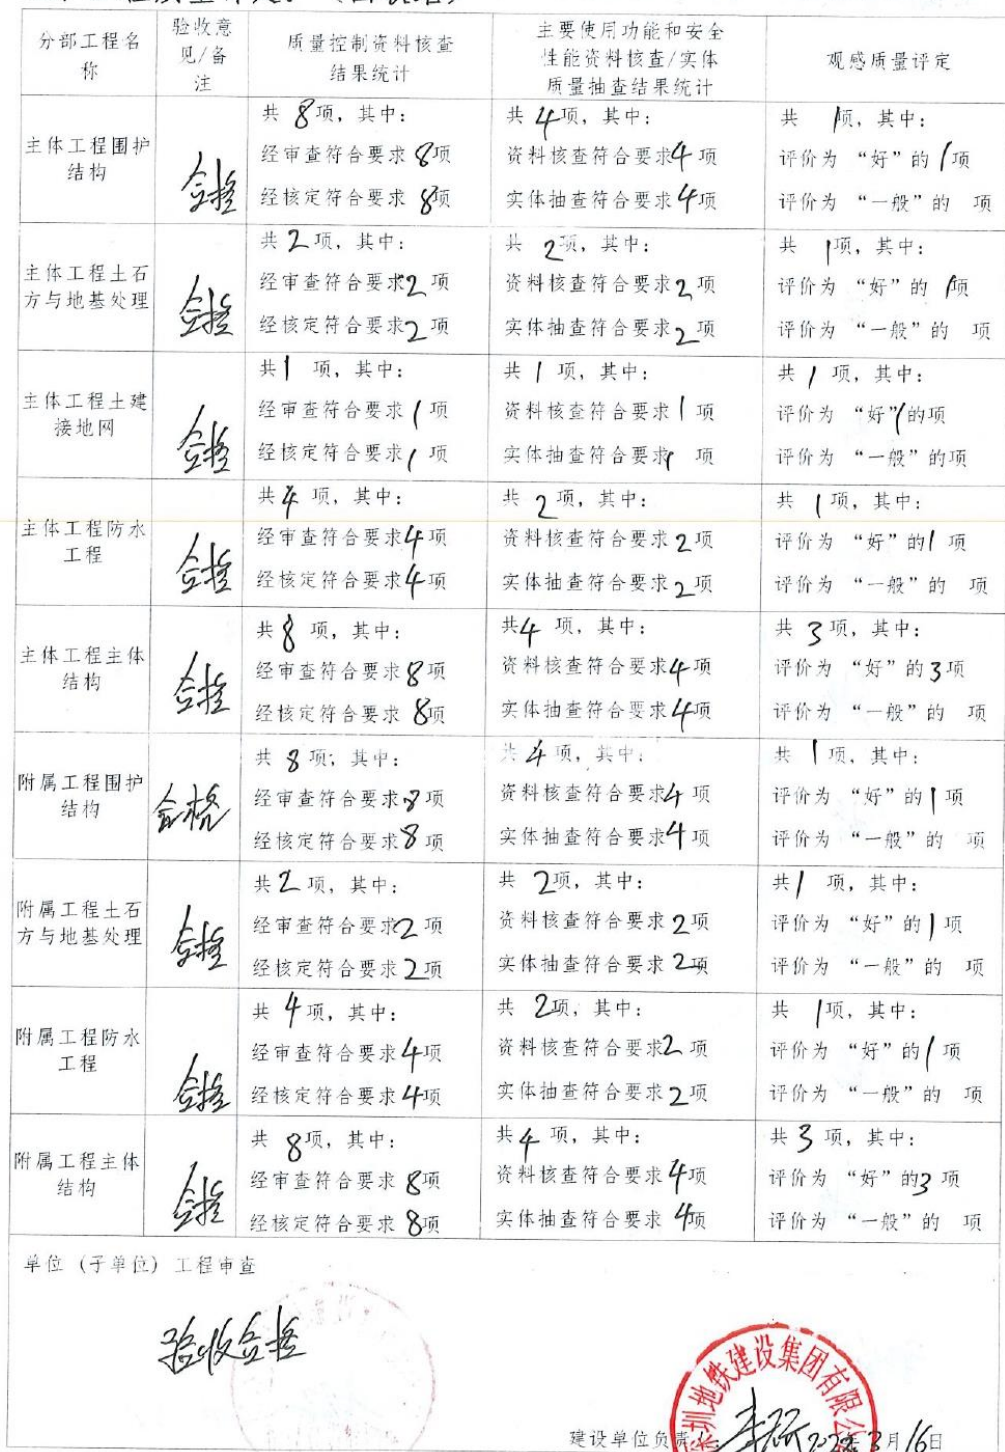 分部工程名
称
验收意
见/备
注
质量控制资料核查
结果统计
主要使用功能和安全
性能资料核查/实体
质量抽查结果统计
观感质量评定
主体工程围护
结构
合格
共 8项，其中：
经审查符合要求 8项
经核定符合要求 8项
共 4项，其中：
资料核查符合要求4 项
实体抽查符合要求4项
共 1项，其中：
评价为 “好”的 1项
评价为 “一般”的 项
主体工程土石
方与地基处理
合格
共2项，其中：
经审查符合要求2 项
经核定符合要求2 项
共 2项，其中：
资料核查符合要求2 项
实体抽查符合要求2 项
共 1项，其中：
评价为 “好”的 1项
评价为 “一般”的 项
主体工程土建
接地网
合格
共1 项，其中：
经审查符合要求1 项
经核定符合要求1 项
共 1 项，其中：
资料核查符合要求1 项
实体抽查符合要求1 项
共 1 项，其中：
评价为 “好”1的项
评价为 “一般”的项
主体工程防水
工程
合格
共4 项，其中：
经审查符合要求4项
经核定符合要求4项
共 2项，其中：
资料核查符合要求2项
实体抽查符合要求2项
共 1项，其中：
评价为 “好”的1 项
评价为 “一般”的 项
主体工程主体
结构
合格
共8 项，其中：
经审查符合要求8项
经核定符合要求 8项
共4 项，其中：
资料核查符合要求4项
实体抽查符合要求4项
共 3项，其中：
评价为 “好”的3项
评价为 “一般”的 项
附属工程围护
结构
合格
共 8项；其中：
经审查符合要求8 项
经核定符合要求8 项
共 4项，其中：
资料核查符合要求4 项
实体抽查符合要求4 项
共 1项，其中：
评价为 “好”的1项
评价为 “一般”的 项
附属工程土石
方与地基处理
合格
共2 项，其中：
经审查符合要求2 项
经核定符合要求2项
共 2项，其中：
资料核查符合要求2项
实体抽查符合要求2项
共1 项，其中：
评价为 “好”的1项
评价为 “一般”的 项
附属工程防水
工程
合格
共 4项，其中：
经审查符合要求4项
经核定符合要求4项
共 2项，其中：
资料核查符合要求2 项
实体抽查符合要求2项
共 1项，其中：
评价为 “好”的1 项
评价为 “一般”的 项
附属工程主体
结构
合格
共 8项，其中：
经审查符合要求 8项
经核定符合要求 8项
共4 项，其中：
资料核查符合要求4项
实体抽查符合要求 4项
共3 项，其中：
评价为 “好”的3 项
评价为 “一般”的 项
单位（子单位）工程审查
验收合格
圳地铁建设集团有限公
建设单位负责人 年3月16日